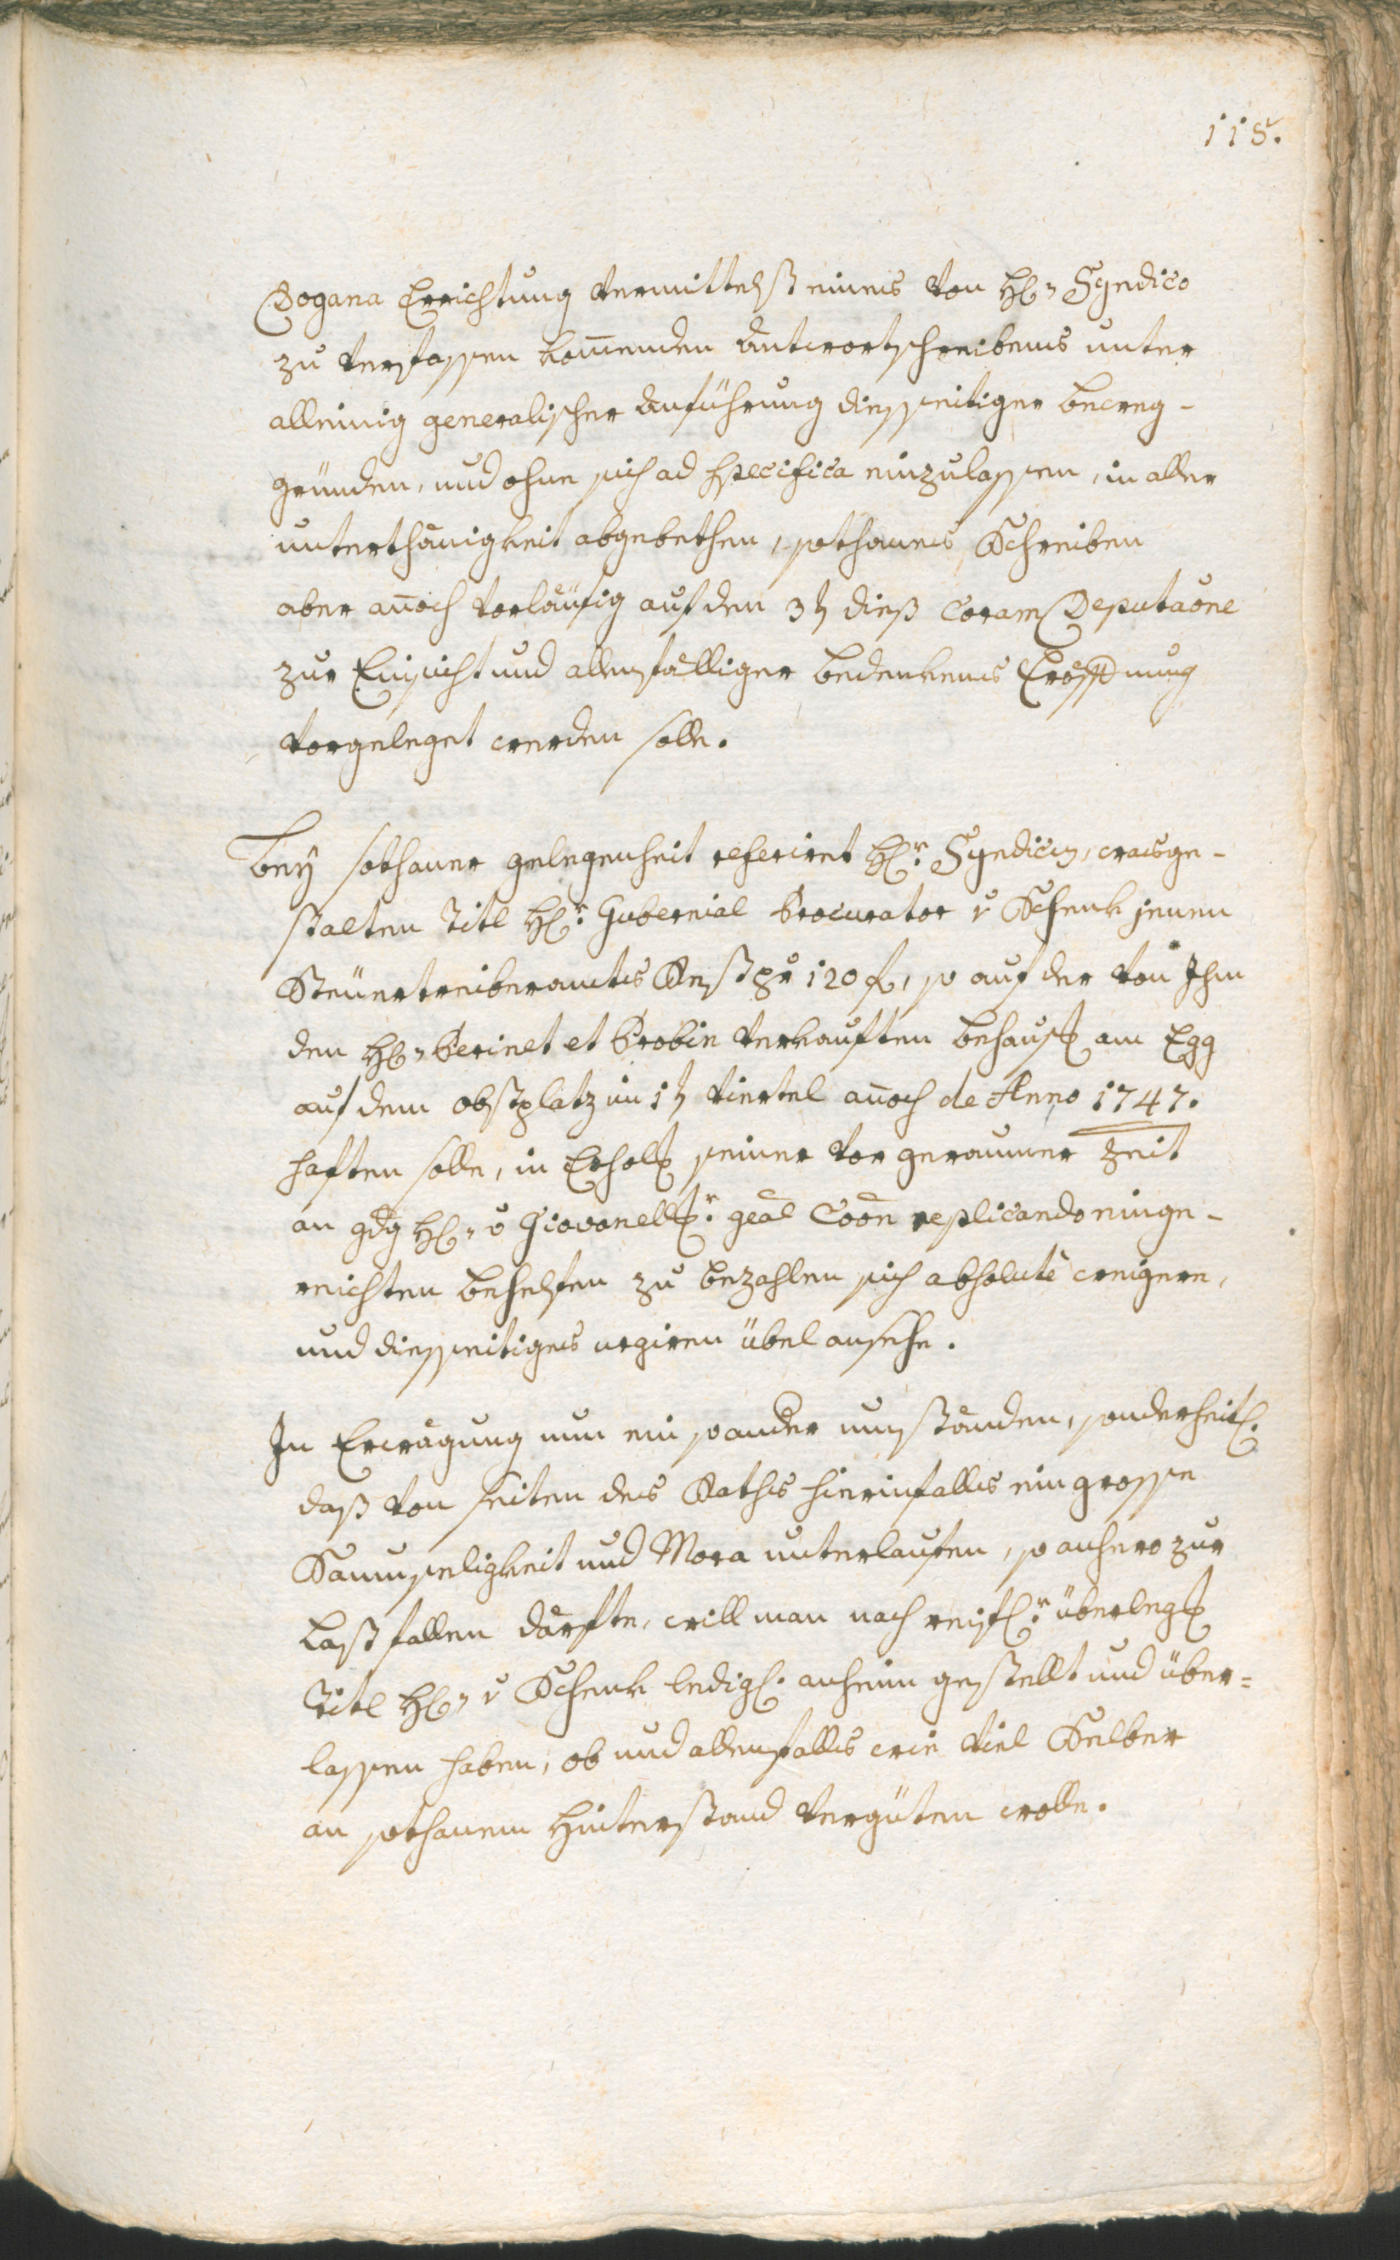 118.
Dogana Errichtung vermittelst eines von H: Syndico
zu verfassen kommenden Antwortschreibens unter
alleinig generalischer Anführung diesseitiger beweg-
gründen, und ohne sich ad specifica einzulassen, in aller
unterthänigkeit abgebethen, sothannes Schreiben
aber annoch vorläufig auf den 3t dieß Coram Deputaōne
zur Einsicht und allenfälliger bedenkens Eröffnung
vorgeleget werden solle.
Bey sothaner gelegenheit referiret H:r Syndicus, wasge-
stalten Titl H:r Gubernial Procurator v Schenk jenen
Steüertreiberamtes Rest pr 120 f, so auf der von Ihm
den H: Perinet et Probin verkauften behaus: am Egg
auf dem obstplatz in 1t viertel annoch de Anno 1747.
haften solle, in Erhol: seiner vor geraumer Zeit
an gdg H: v Giovanell:r geāl Coōn replicando einge-
reichten behelfen zu bezahlen sich absolutè weigere,
und diesseitiges urgiren übel ansehe.
In Erwägung nun ein so ander umständen, sonderheitl:
daß von seiten des Raths hierinfalls ein grosse
Saumseligkeit und Mora unterlaufen, so anhero zur
Last fallen därfte, will man nach reifl:r überleg:
Titl H: v Schenk ledigl: anheim gestellt und über=
lassen haben, ob und allenfalls wie viel Selber
an sothanem Hinterstand vergüten wolle.